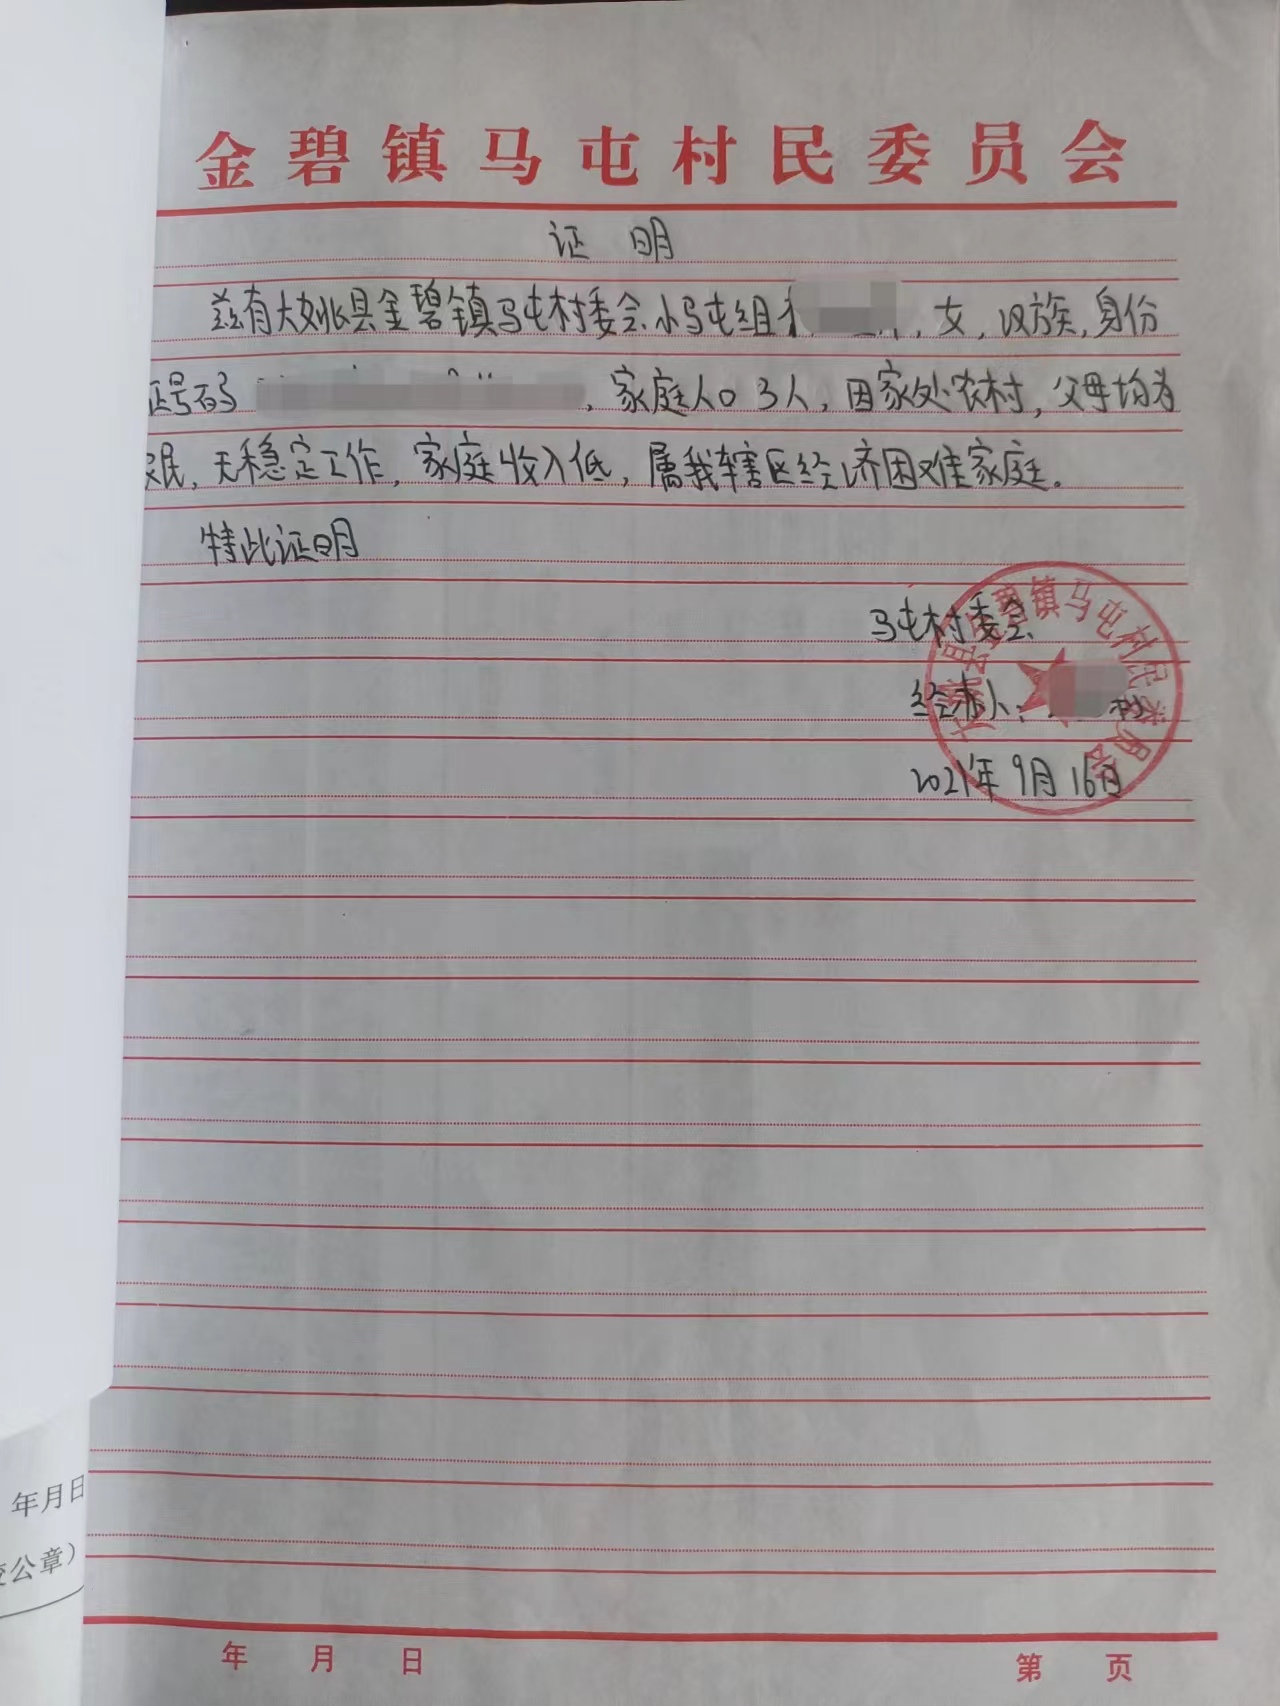 金碧镇马屯村民委员会
证 明
兹有大姚县金碧镇马屯村委会小马屯组 ，女，汉族，身份
证号码 ，家庭人口3人，因家处农村，父母均为
农民，无稳定工作，家庭收入低，属我辖区经济困难家庭。
特此证明
马屯村委会
经办人：
2021年9月16日
大姚县金碧镇马屯村民委员会
年月日
公章）
年 月 日
第 页